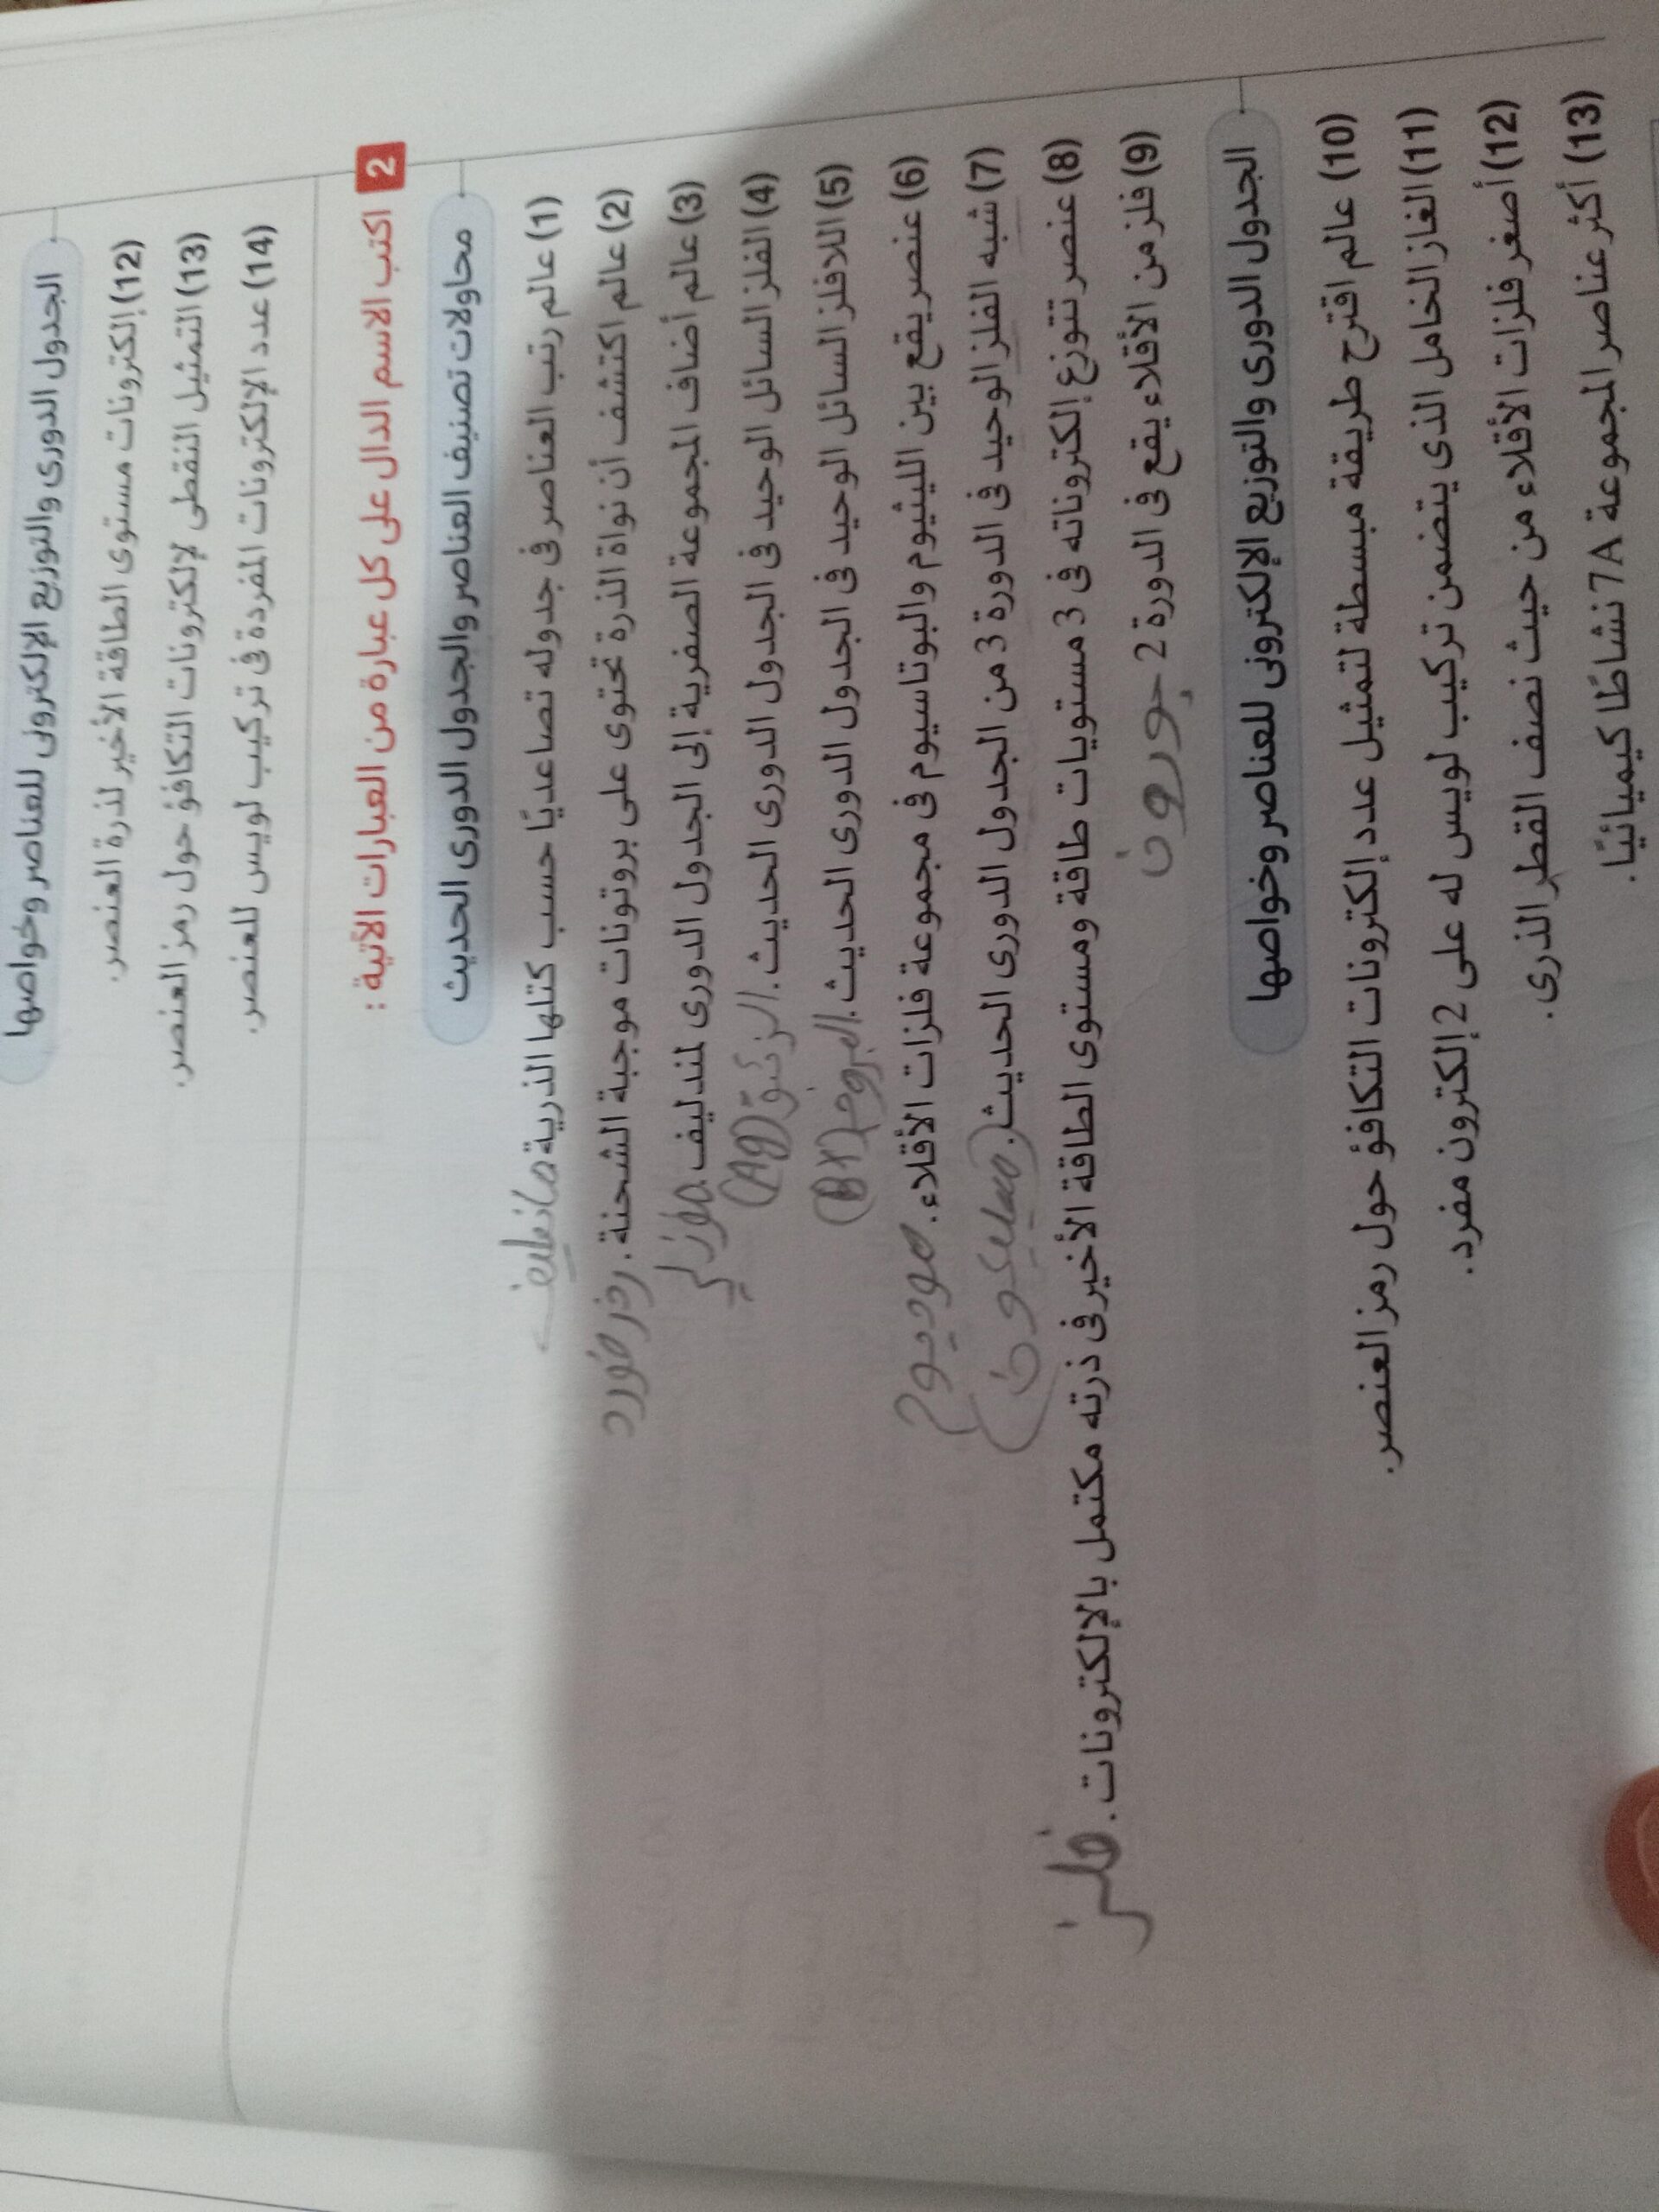 الجدول الدورى والتوزيع الإلكترونى للعناصر وخواصها
(12) إلكترونات مستوى الطاقة الأخير لذرة العنصر.
(13) التمثيل النقطى لإلكترونات التكافؤ حول رمز العنصر.
(14) عدد الإلكترونات المفردة فى تركيب لويس للعنصر.
2 اكتب الاسم الدال على كل عبارة من العبارات الآتية :
محاولات تصنيف العناصر والجدول الدورى الحديث
(1) عالم رتب العناصر فى جدوله تصاعديًا حسب كتلها الذرية
(2) عالم اكتشف أن نواة الذرة تحتوى على بروتونات موجبة الشحنة. رذرفورد
(3) عالم أضاف المجموعة الصفرية إلى الجدول الدورى لمندليف. موزلي
(4) الفلز السائل الوحيد فى الجدول الدورى الحديث. الزئبق (Ag)
(5) اللافلز السائل الوحيد فى الجدول الدورى الحديث. البروم (Br)
(6) عنصر يقع بين الليثيوم والبوتاسيوم فى مجموعة فلزات الأقلاء. صوديوم
(7) شبه الفلز الوحيد فى الدورة 3 من الجدول الدورى الحديث. (سيليكون)
(8) عنصر تتوزع إلكتروناته فى 3 مستويات طاقة ومستوى الطاقة الأخير فى ذرته مكتمل بالإلكترونات. فلز
(9) فلز من الأقلاء يقع فى الدورة 2 بورون
الجدول الدورى والتوزيع الإلكترونى للعناصر وخواصها
(10) عالم اقترح طريقة مبسطة لتمثيل عدد إلكترونات التكافؤ حول رمز العنصر.
(11) الغاز الخامل الذى يتضمن تركيب لويس له على 2 إلكترون مفرد.
(12) أصغر فلزات الأقلاء من حيث نصف القطر الذرى.
(13) أكثر عناصر المجموعة 7A نشاطًا كيميائيًا.